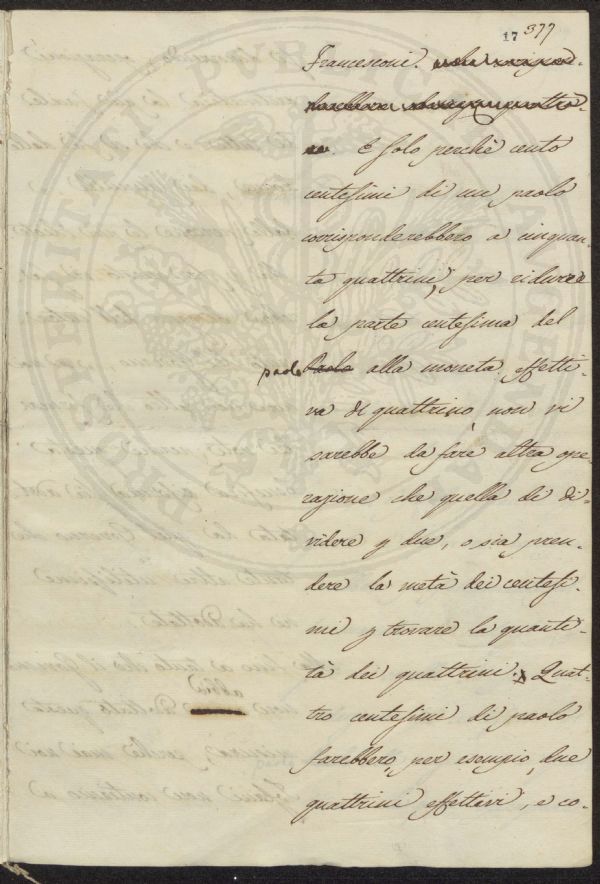 17 377
Francesconi.
E solo perchè cento
centesimi di un paolo
corrisponderebbero a cinquan-
ta quattrini, per ridurre
la parte centesima del
paolo Paolo alla moneta effetti-
va di quattrino, non vi
sarebbe da fare altra ope-
razione che quella di di-
videre p due, o sia pren-
dere la metà dei centesi-
mi p trovare la quanti-
tà dei quattrini. Quat-
tro centesimi di paolo
farebbero, per esempio, due
quattrini effettivi, e co-